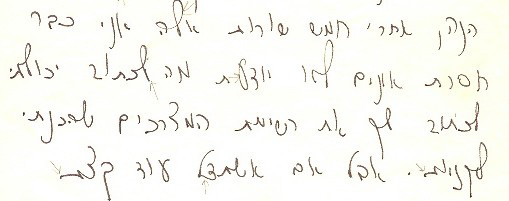 הנהן אחרי חמש שורות אלה אני כבר
חסרת אונים לא יודעת מה לכתוב יכולתי
לכתוב לך את רשימת המצרכים שהכנתי
לקניות. אבל אם אשתדל עוד קצת